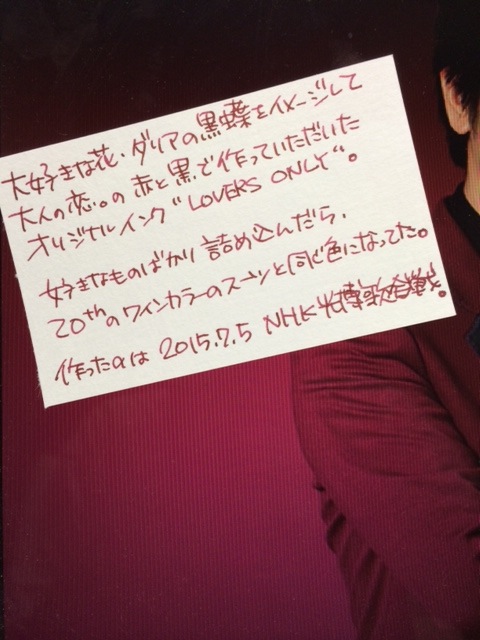 大好きな花・ダリアの黒蝶をイメージして
大人の恋。の 赤と黒で作っていただいた
オリジナルインク“LOVERS ONLY”。
好きなものばかり詰め込んだら、
20thのワインカラーのスーツと同じ色になってた。
作ったのは 2015.7.5 NHK